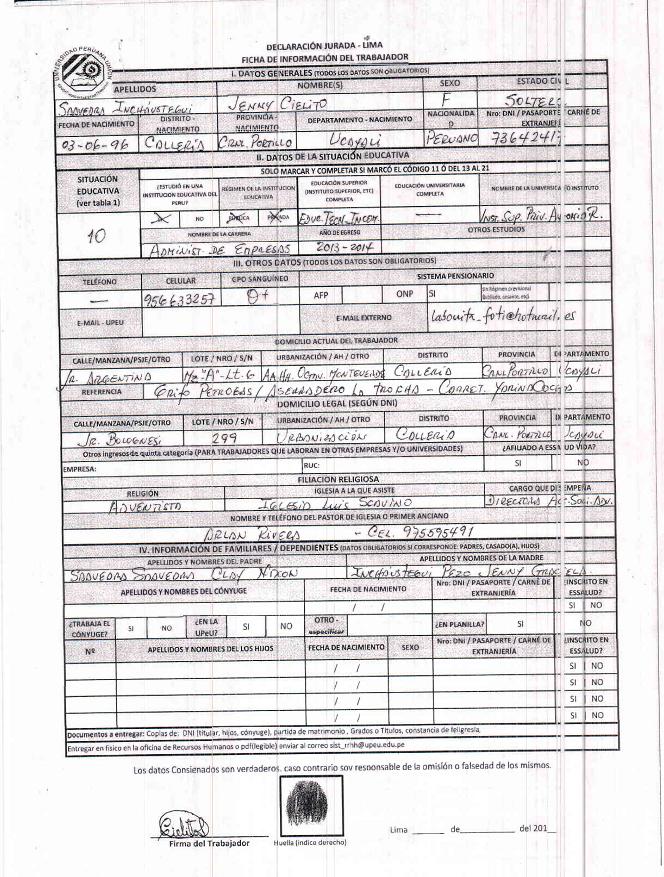 DECLARACIÓN JURADA - LIMA
FICHA DE INFORMACIÓN DEL TRABAJADOR
UNIVERSIDAD PERUANA UNION
I. DATOS GENERALES (TODOS LOS DATOS SON OBLIGATORIOS)
APELLIDOS NOMBRE(S) SEXO ESTADO CIVIL
SAAVEDRA INCHAUSTEGUI JENNY CIELITO F SOLTER
FECHA DE NACIMIENTO DISTRITO - NACIMIENTO PROVINCIA NACIMIENTO DEPARTAMENTO - NACIMIENTO NACIONALIDAD Nro: DNI / PASAPORTE / CARNÉ DE EXTRANJERÍA
03-06-96 CALLERÍA CRNL. PORTILLO UCAYALI PERUANO 7364241
II. DATOS DE LA SITUACIÓN EDUCATIVA
SOLO MARCAR Y COMPLETAR SI MARCÓ EL CÓDIGO 11 Ó DEL 13 AL 21
SITUACIÓN EDUCATIVA (ver tabla 1) ¿ESTUDIÓ EN UNA INSTITUCIÓN EDUCATIVA DEL PERU? RÉGIMEN DE LA INSTITUCION EDUCATIVA EDUCACIÓN SUPERIOR (INSTITUTO SUPERIOR, ETC) COMPLETA EDUCACIÓN UNIVERSITARIA COMPLETA NOMBRE DE LA UNIVERSIDAD O INSTITUTO
10 NO PRIVADA EDUC. TECN. INCOM. — INST. SUP. PRIV. ANTONIO R.
NOMBRE DE LA CARRERA AÑO DE EGRESO OTROS ESTUDIOS
ADMINIST. DE EMPRESAS 2013-2014
III. OTROS DATOS (TODOS LOS DATOS SON OBLIGATORIOS)
TELÉFONO CELULAR GPO SANGUÍNEO SISTEMA PENSIONARIO
— 956633257 O+ AFP ONP SI
E-MAIL - UPEU E-MAIL EXTERNO labonita_foti@hotmail.es
DOMICILIO ACTUAL DEL TRABAJADOR
CALLE/MANZANA/PSJE/OTRO LOTE / NRO / S/N URBANIZACIÓN / AH / OTRO DISTRITO PROVINCIA DEPARTAMENTO
JR. ARGENTINA Mz "A"-Lt. 6 AA.HH. MONTEVERDE CALLERÍA CRNL PORTILLO UCAYALI
REFERENCIA GRIFO PETROGAS / ASERRADERO LA TROCHA - CARRET.
DOMICILIO LEGAL (SEGÚN DNI)
CALLE/MANZANA/PSJE/OTRO LOTE / NRO / S/N URBANIZACIÓN / AH / OTRO DISTRITO PROVINCIA DEPARTAMENTO
JR. BOLOGNESI 299 URBANIZACION CALLERIA CRNL. PORTILLO UCAYALI
Otros ingresos de quinta categoría (PARA TRABAJADORES QUE LABORAN EN OTRAS EMPRESAS Y/O UNIVERSIDADES) ¿AFILIADO A ESSALUD VIDA?
EMPRESA: RUC: SI NO
FILIACION RELIGIOSA
RELIGIÓN IGLESIA A LA QUE ASISTE CARGO QUE DESEMPEÑA
ADVENTISTA IGLESIA LUIS SCAVINO DIRECTORA
NOMBRE Y TELÉFONO DEL PASTOR DE IGLESIA O PRIMER ANCIANO
ARLAN RIVERA - CEL. 975595491
IV. INFORMACIÓN DE FAMILIARES / DEPENDIENTES (DATOS OBLIGATORIOS SI CORRESPONDE: PADRES, CASADO(A), HIJOS)
APELLIDOS Y NOMBRES DEL PADRE APELLIDOS Y NOMBRES DE LA MADRE
SAAVEDRA SAAVEDRA CLAY NIXON INCHAUSTEGUI PEZO JENNY GRACIELA
APELLIDOS Y NOMBRES DEL CÓNYUGE FECHA DE NACIMIENTO Nro: DNI / PASAPORTE / CARNÉ DE EXTRANJERÍA ¿INSCRITO EN ESSALUD?
/ / SI NO
¿TRABAJA EL CÓNYUGE? SI NO ¿EN LA UPeU? SI NO OTRO - especificar ¿EN PLANILLA? SI NO
Nº APELLIDOS Y NOMBRES DEL LOS HIJOS FECHA DE NACIMIENTO SEXO Nro: DNI / PASAPORTE / CARNÉ DE EXTRANJERÍA ¿INSCRITO EN ESSALUD?
/ / SI NO
/ / SI NO
/ / SI NO
/ / SI NO
Documentos a entregar: Copias de: DNI (titular, hijos, cónyuge), partida de matrimonio, Grados o Títulos, constancia de feligresía,
Entregar en físico en la oficina de Recursos Humanos o pdf(legible) enviar al correo sist_rrhh@upeu.edu.pe
Los datos Consignados son verdaderos, caso contrario soy responsable de la omisión o falsedad de los mismos.
Cielito
Firma del Trabajador Huella (índice derecho) Lima ______ de__________ del 201__